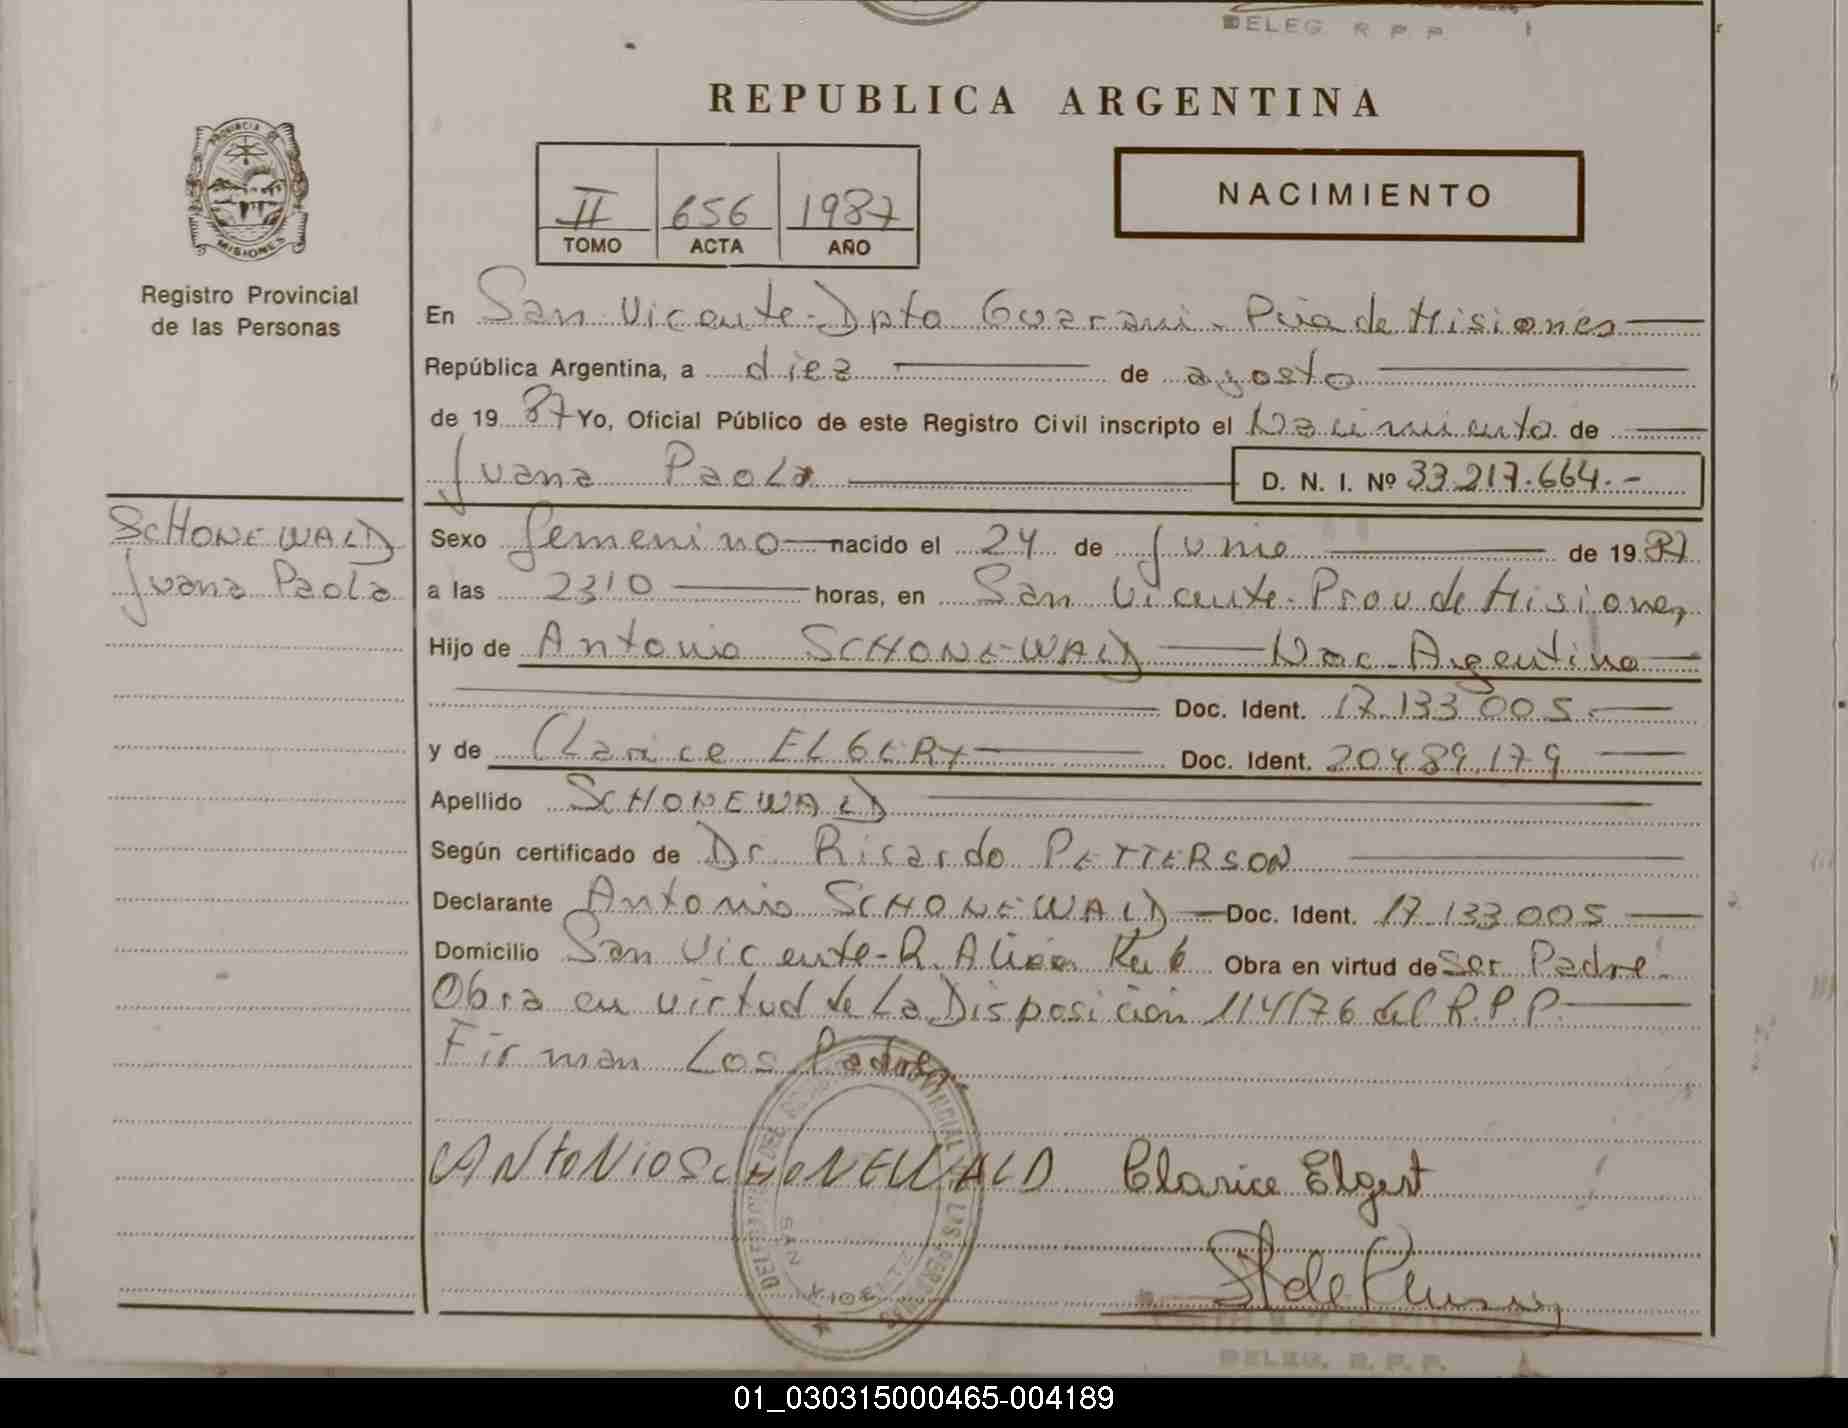 DELEG. R. P. P.
REPUBLICA ARGENTINA
PROVINCIA DE
MISIONES
Registro Provincial
de las Personas
II 656 1987
TOMO ACTA AÑO
NACIMIENTO
En San Vicente - Dpto Guarani - Pcia de Misiones
República Argentina, a diez de agosto
de 1987 Yo, Oficial Público de este Registro Civil inscripto el Nacimiento de
Juana Paola D. N. I. Nº 33.217.664.-
SCHONEWALD
Juana Paola
Sexo femenino nacido el 24 de Junio de 1987
a las 2310 horas, en San Vicente - Prov de Misiones
Hijo de Antonio SCHONEWALD Nac. Argentino
Doc. Ident. 17.133.005.
y de Clarice ELGERT Doc. Ident. 20.489.179
Apellido SCHONEWALD
Según certificado de Dr. Ricardo PETTERSON
Declarante Antonio SCHONEWALD Doc. Ident. 17.133.005
Domicilio San Vicente - R. Alicia Obra en virtud de ser Padre.
Obra en virtud de La Disposición 114/76 del R.P.P.
Firman Los Padres.
ANtoNio ScHoNEWALD Clarice Elgert
SAN VICENTE
DELEG. R. P. P.
01_030315000465-004189